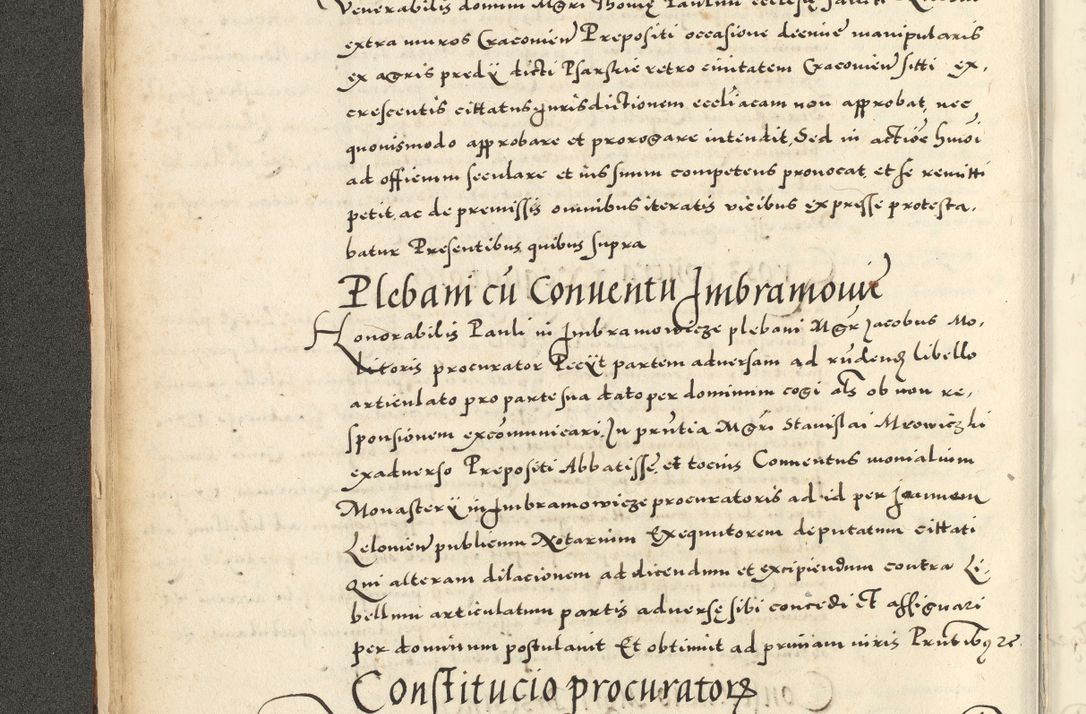 Venerabilis domini Mgri Thomę Paulini ecclesię
extra muros Cracovien Prepositi occasione decime manipularis
ex agris predij dicti Psarskie retro civitatem Cracovien sitti ex,
crescentis cittatus jurisdictionem eccliacam non approbat, nec
quovismodo approbare et prorogare intendit, Sed in actiōe hmōi
ad officium seculare et ius suum competens provocat, et se remitti
petit, ac de premissis omnibus iteratis vicibus expresse protesta,
batur Presentibus quibus supra
Plebani cū Conventu Imbramović
Honorabilis Pauli in Imbramowicze plebani Mgr Jacobus Mo,
litoris procurator Pecijt partem adversam ad rūdendū libello
articulato pro parte sua dato per dominum cogi als ob non re,
sponsionem excōmunicari, In prn̄tia Mgri Stanislai Mrowiczki
ex adverso Prepositi Abbatissę, et tocius Conventus monialium
Monasterij in Imbramowicze procuratoris ad id per Joannem
Lelovien publicum Notarium Exequutorem deputatum cittati
Qui alteram dilacionem ad dicendum et excipiendum contra Li,
bellum articulatum partis adversę sibi concedi et assignari
per dominum postulavit Et obtinuit ad primam iuris Prn̄tibus zc
Constitucio procuratorū